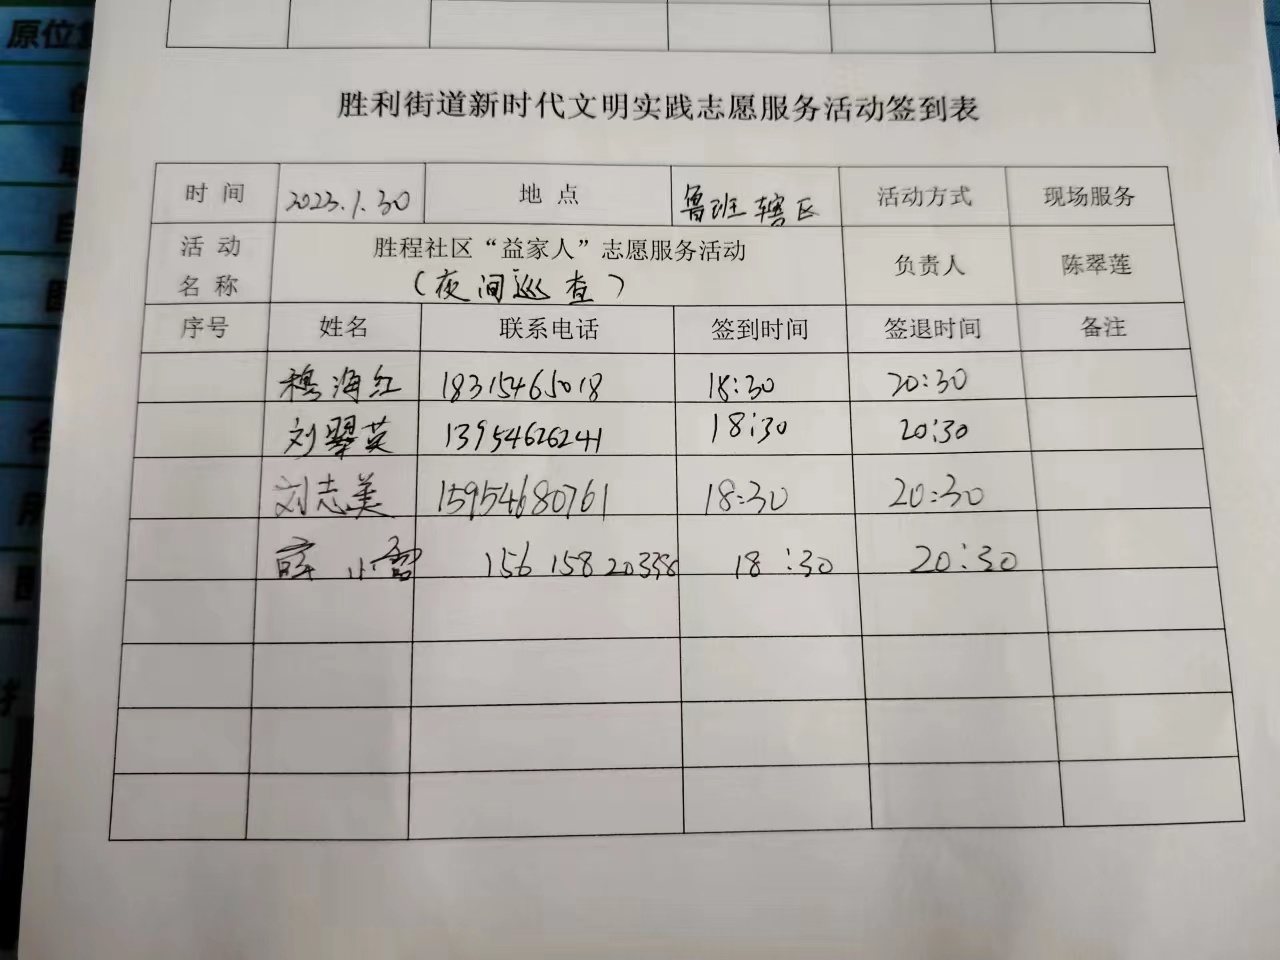 原位
胜利街道新时代文明实践志愿服务活动签到表
时 间 2023.1.30 地 点 鲁班辖区 活动方式 现场服务
活 动 名 称 胜程社区“益家人”志愿服务活动 负责人 陈翠莲
（夜间巡查）
序号 姓名 联系电话 签到时间 签退时间 备注
穆海红 18315465018 18:30 20:30
刘翠英 13954626241 18:30 20:30
刘志美 15954680761 18:30 20:30
薛小雪 156 158 20338 18:30 20:30